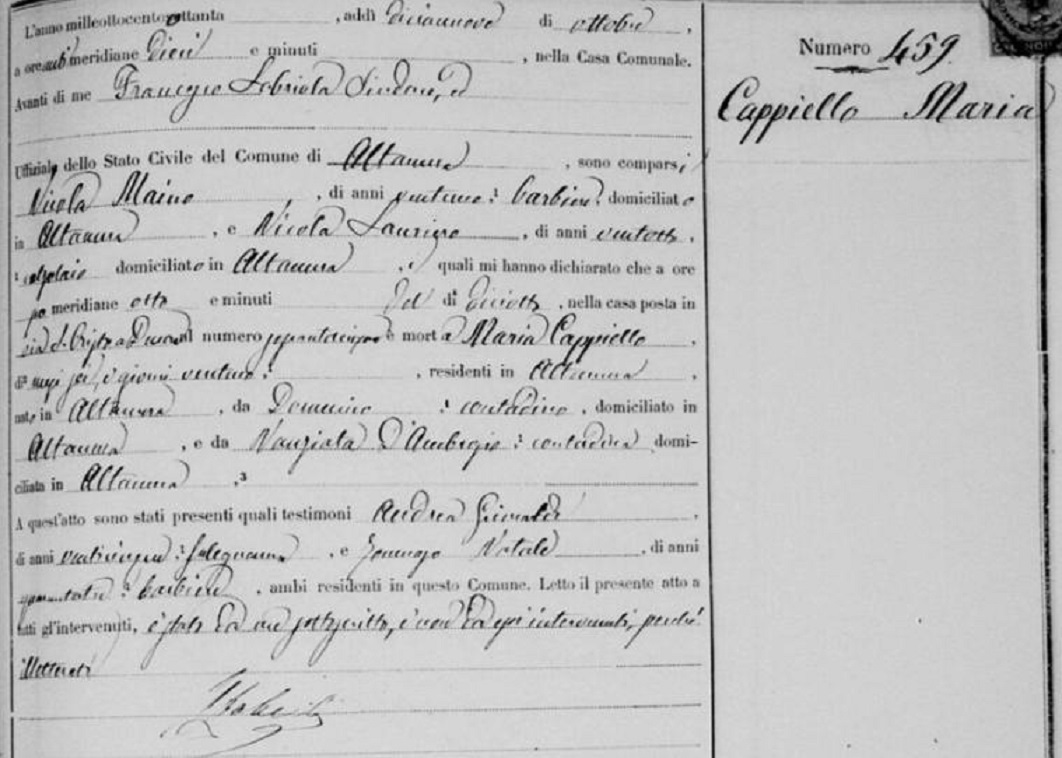 L'anno milleottocentoottanta, addì diciannove di ottobre,
a ore anti meridiane dieci e minuti, nella Casa Comunale.
Avanti di me Francesco Labriola Sindaco, ed
Uffiziale dello Stato Civile del Comune di Altamura, sono comparsi
Nicola Maino, di anni ventuno: barbiere: domiciliato
in Altamura, e Nicola, di anni ventotto,
: calzolaio domiciliato in Altamura, i quali mi hanno dichiarato che a ore
po meridiane otto e minuti del dì diciotto, nella casa posta in
via al numero è morta Maria Cappiello,
di mesi sei, e giorni ventuno:, residenti in Altamura,
nata in Altamura, da Domenico : contadino, domiciliato in
Altamura, e da Nunziata D'Ambrosio: contadina domi-
ciliata in Altamura.
A quest'atto sono stati presenti quali testimoni Andrea Grimaldi,
di anni venticinque: falegname, e Natale, di anni
: barbiere, ambi residenti in questo Comune. Letto il presente atto a
tutti gl'intervenuti, è stato da me sottoscritto, e non da essi intervenuti, perché
illetterati
Numero 459
Cappiello Maria